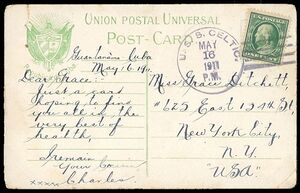 UNION POSTAL UNIVERSAL
POST-CARD
Guantánamo, Cuba
May 16, 1911
U.S.S. CELTIC
MAY
16
1911
P.M.
Dear Grace:
Just a card
hoping to find
you all in the
very best of
health,
I remain
Your Cousin
xxxx Charles
Miss Grace
East
New York City,
N. Y.
"USA"